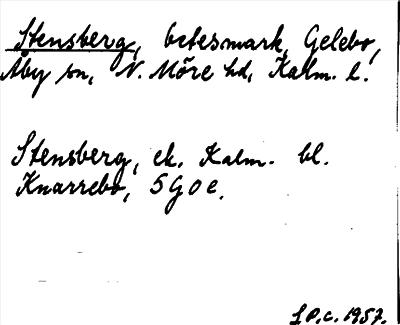 Stensberg, betesmark, Gelebo,
Åby sn, N. Möre hd, Kalm. l.
Stensberg, ek. Kalm. bl.
Knarrebo, 5G0e.
L P.c. 1957.